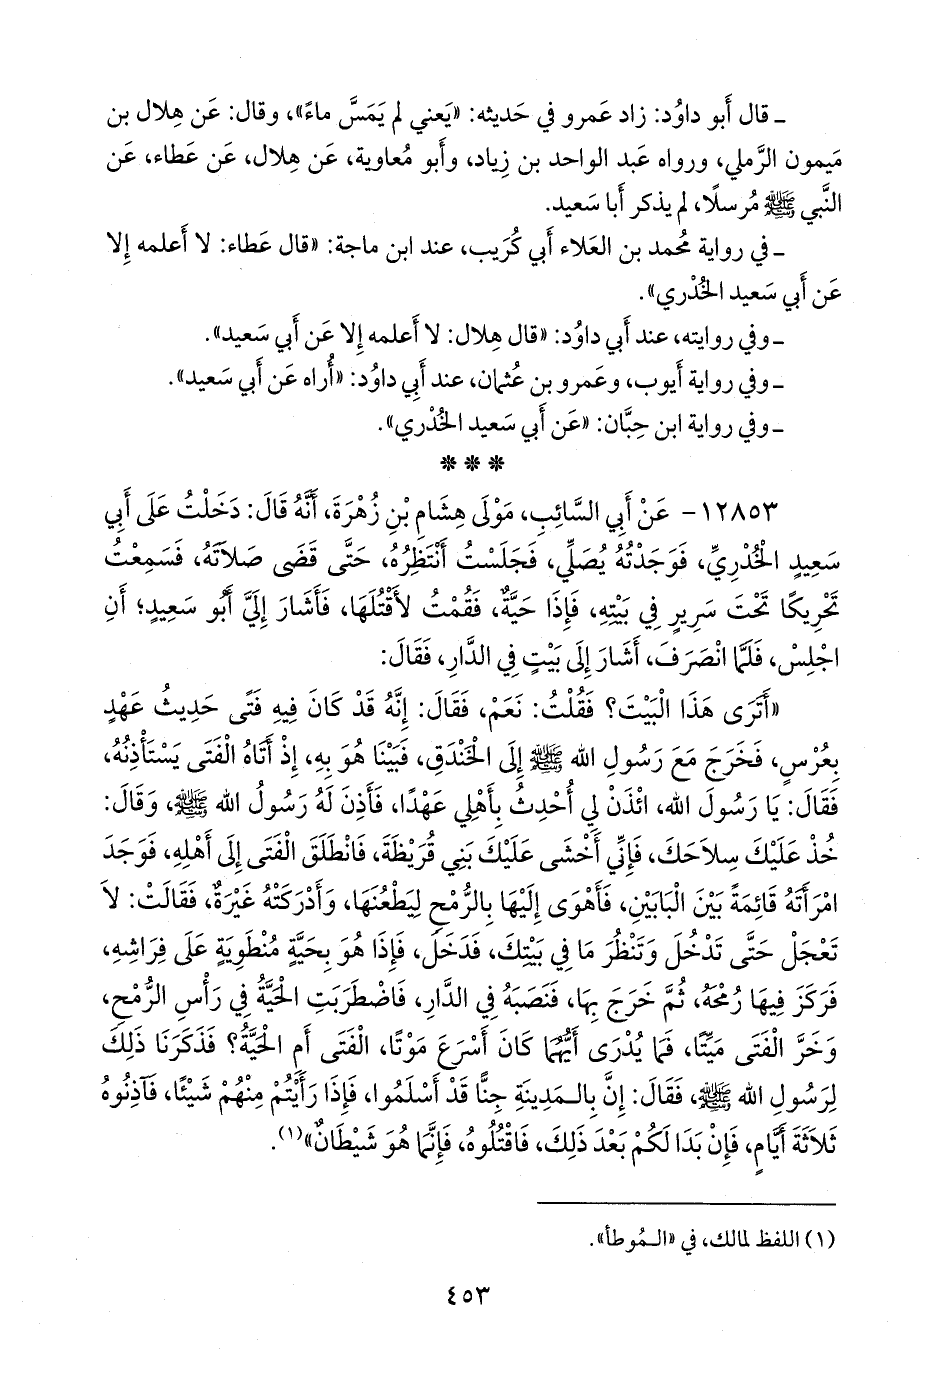 ـ قال أَبو داوُد: زاد عَمرو في حَديثه: «يَعني لم يَمَسَّ ماءً»، وقال: عَن هِلال بن
مَيمون الرَّملي، ورواه عَبد الواحد بن زِياد، وأَبو مُعاوية، عَن هِلال، عَن عَطاء، عَن
النَّبي ﷺ مُرسلًا، لم يذكر أَبا سَعيد.
ـ في رواية مُحمد بن العَلاء أَبي كُرَيب، عند ابن ماجة: «قال عَطاء: لا أَعلمه إِلا
عَن أَبي سَعيد الخُدْري».
ـ وفي روايته، عند أَبي داوُد: «قال هِلال: لا أَعلمه إِلا عَن أَبي سَعيد».
ـ وفي رواية أَيوب، وعَمرو بن عُثمان، عند أَبي داوُد: «أُراه عَن أَبي سَعيد».
ـ وفي رواية ابن حِبَّان: «عَن أَبي سَعيد الخُدْري».
* * *
١٢٨٥٣- عَنْ أَبِي السَّائِبِ، مَوْلَى هِشَامِ بْنِ زُهْرَةَ، أَنَّهُ قَالَ: دَخَلْتُ عَلَى أَبِي
سَعِيدٍ الْخُدْرِيِّ، فَوَجَدْتُهُ يُصَلِّي، فَجَلَسْتُ أَنْتَظِرُهُ، حَتَّى قَضَى صَلاَتَهُ، فَسَمِعْتُ
تَحْرِيكًا تَحْتَ سَرِيرٍ فِي بَيْتِهِ، فَإِذَا حَيَّةٌ، فَقُمْتُ لأَقْتُلَهَا، فَأَشَارَ إِلَيَّ أَبُو سَعِيدٍ؛ أَنِ
اجْلِسْ، فَلَمَّا انْصَرَفَ، أَشَارَ إِلَى بَيْتٍ فِي الدَّارِ، فَقَالَ:
«أَتَرَى هَذَا الْبَيْتَ؟ فَقُلْتُ: نَعَمْ، فَقَالَ: إِنَّهُ قَدْ كَانَ فِيهِ فَتًى حَدِيثُ عَهْدٍ
بِعُرْسٍ، فَخَرَجَ مَعَ رَسُولِ الله ﷺ إِلَى الْخَنْدَقِ، فَبَيْنَا هُوَ بِهِ، إِذْ أَتَاهُ الْفَتَى يَسْتَأْذِنُهُ،
فَقَالَ: يَا رَسُولَ الله، ائْذَنْ لِي أُحْدِثُ بِأَهْلِي عَهْدًا، فَأَذِنَ لَهُ رَسُولُ الله ﷺ، وَقَالَ:
خُذْ عَلَيْكَ سِلاَحَكَ، فَإِنِّي أَخْشَى عَلَيْكَ بَنِي قُرَيْظَةَ، فَانْطَلَقَ الْفَتَى إِلَى أَهْلِهِ، فَوَجَدَ
امْرَأَتَهُ قَائِمَةً بَيْنَ الْبَابَيْنِ، فَأَهْوَى إِلَيْهَا بِالرُّمْحِ لِيَطْعُنَهَا، وَأَدْرَكَتْهُ غَيْرَةٌ، فَقَالَتْ: لاَ
تَعْجَلْ حَتَّى تَدْخُلَ وَتَنْظُرَ مَا فِي بَيْتِكَ، فَدَخَلَ، فَإِذَا هُوَ بِحَيَّةٍ مُنْطَوِيَةٍ عَلَى فِرَاشِهِ،
فَرَكَزَ فِيهَا رُمْحَهُ، ثُمَّ خَرَجَ بِهَا، فَنَصَبَهُ فِي الدَّارِ، فَاضْطَرَبَتِ الْحَيَّةُ فِي رَأْسِ الرُّمْحِ،
وَخَرَّ الْفَتَى مَيِّتًا، فَمَا يُدْرَى أَيُّهُمَا كَانَ أَسْرَعَ مَوْتًا، الْفَتَى أَمِ الْحَيَّةُ؟ فَذَكَرْنَا ذَلِكَ
لِرَسُولِ الله ﷺ، فَقَالَ: إِنَّ بِالـمَدِينَةِ جِنًّا قَدْ أَسْلَمُوا، فَإِذَا رَأَيْتُمْ مِنْهُمْ شَيْئًا، فَآذِنُوهُ
ثَلاَثَةَ أَيَّامٍ، فَإِنْ بَدَا لَكُمْ بَعْدَ ذَلِكَ، فَاقْتُلُوهُ، فَإِنَّمَا هُوَ شَيْطَانٌ»(١).
(١) اللفظ لمالك، في «الـمُوطأ».
٤٥٣